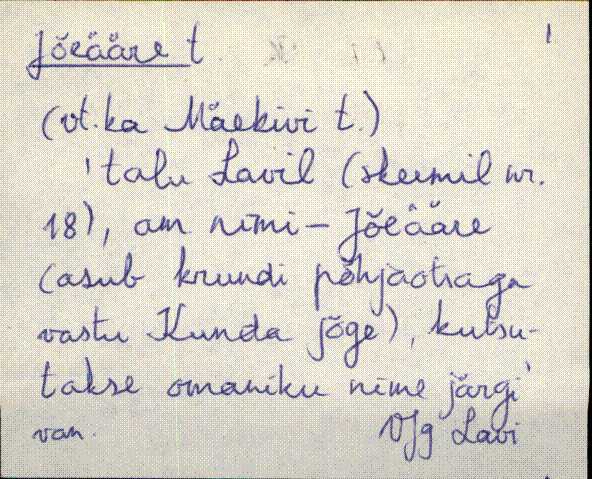 Jõeääre t 1
(vt. ka Mäekivi t.)
'talu Lavil (skeemil nr.
18), am nimi – Jõeääre
(asub krundi põhjaotsaga
vastu Kunda jõge), kutsu-
takse omaniku nime järgi'
van. VJg Lavi